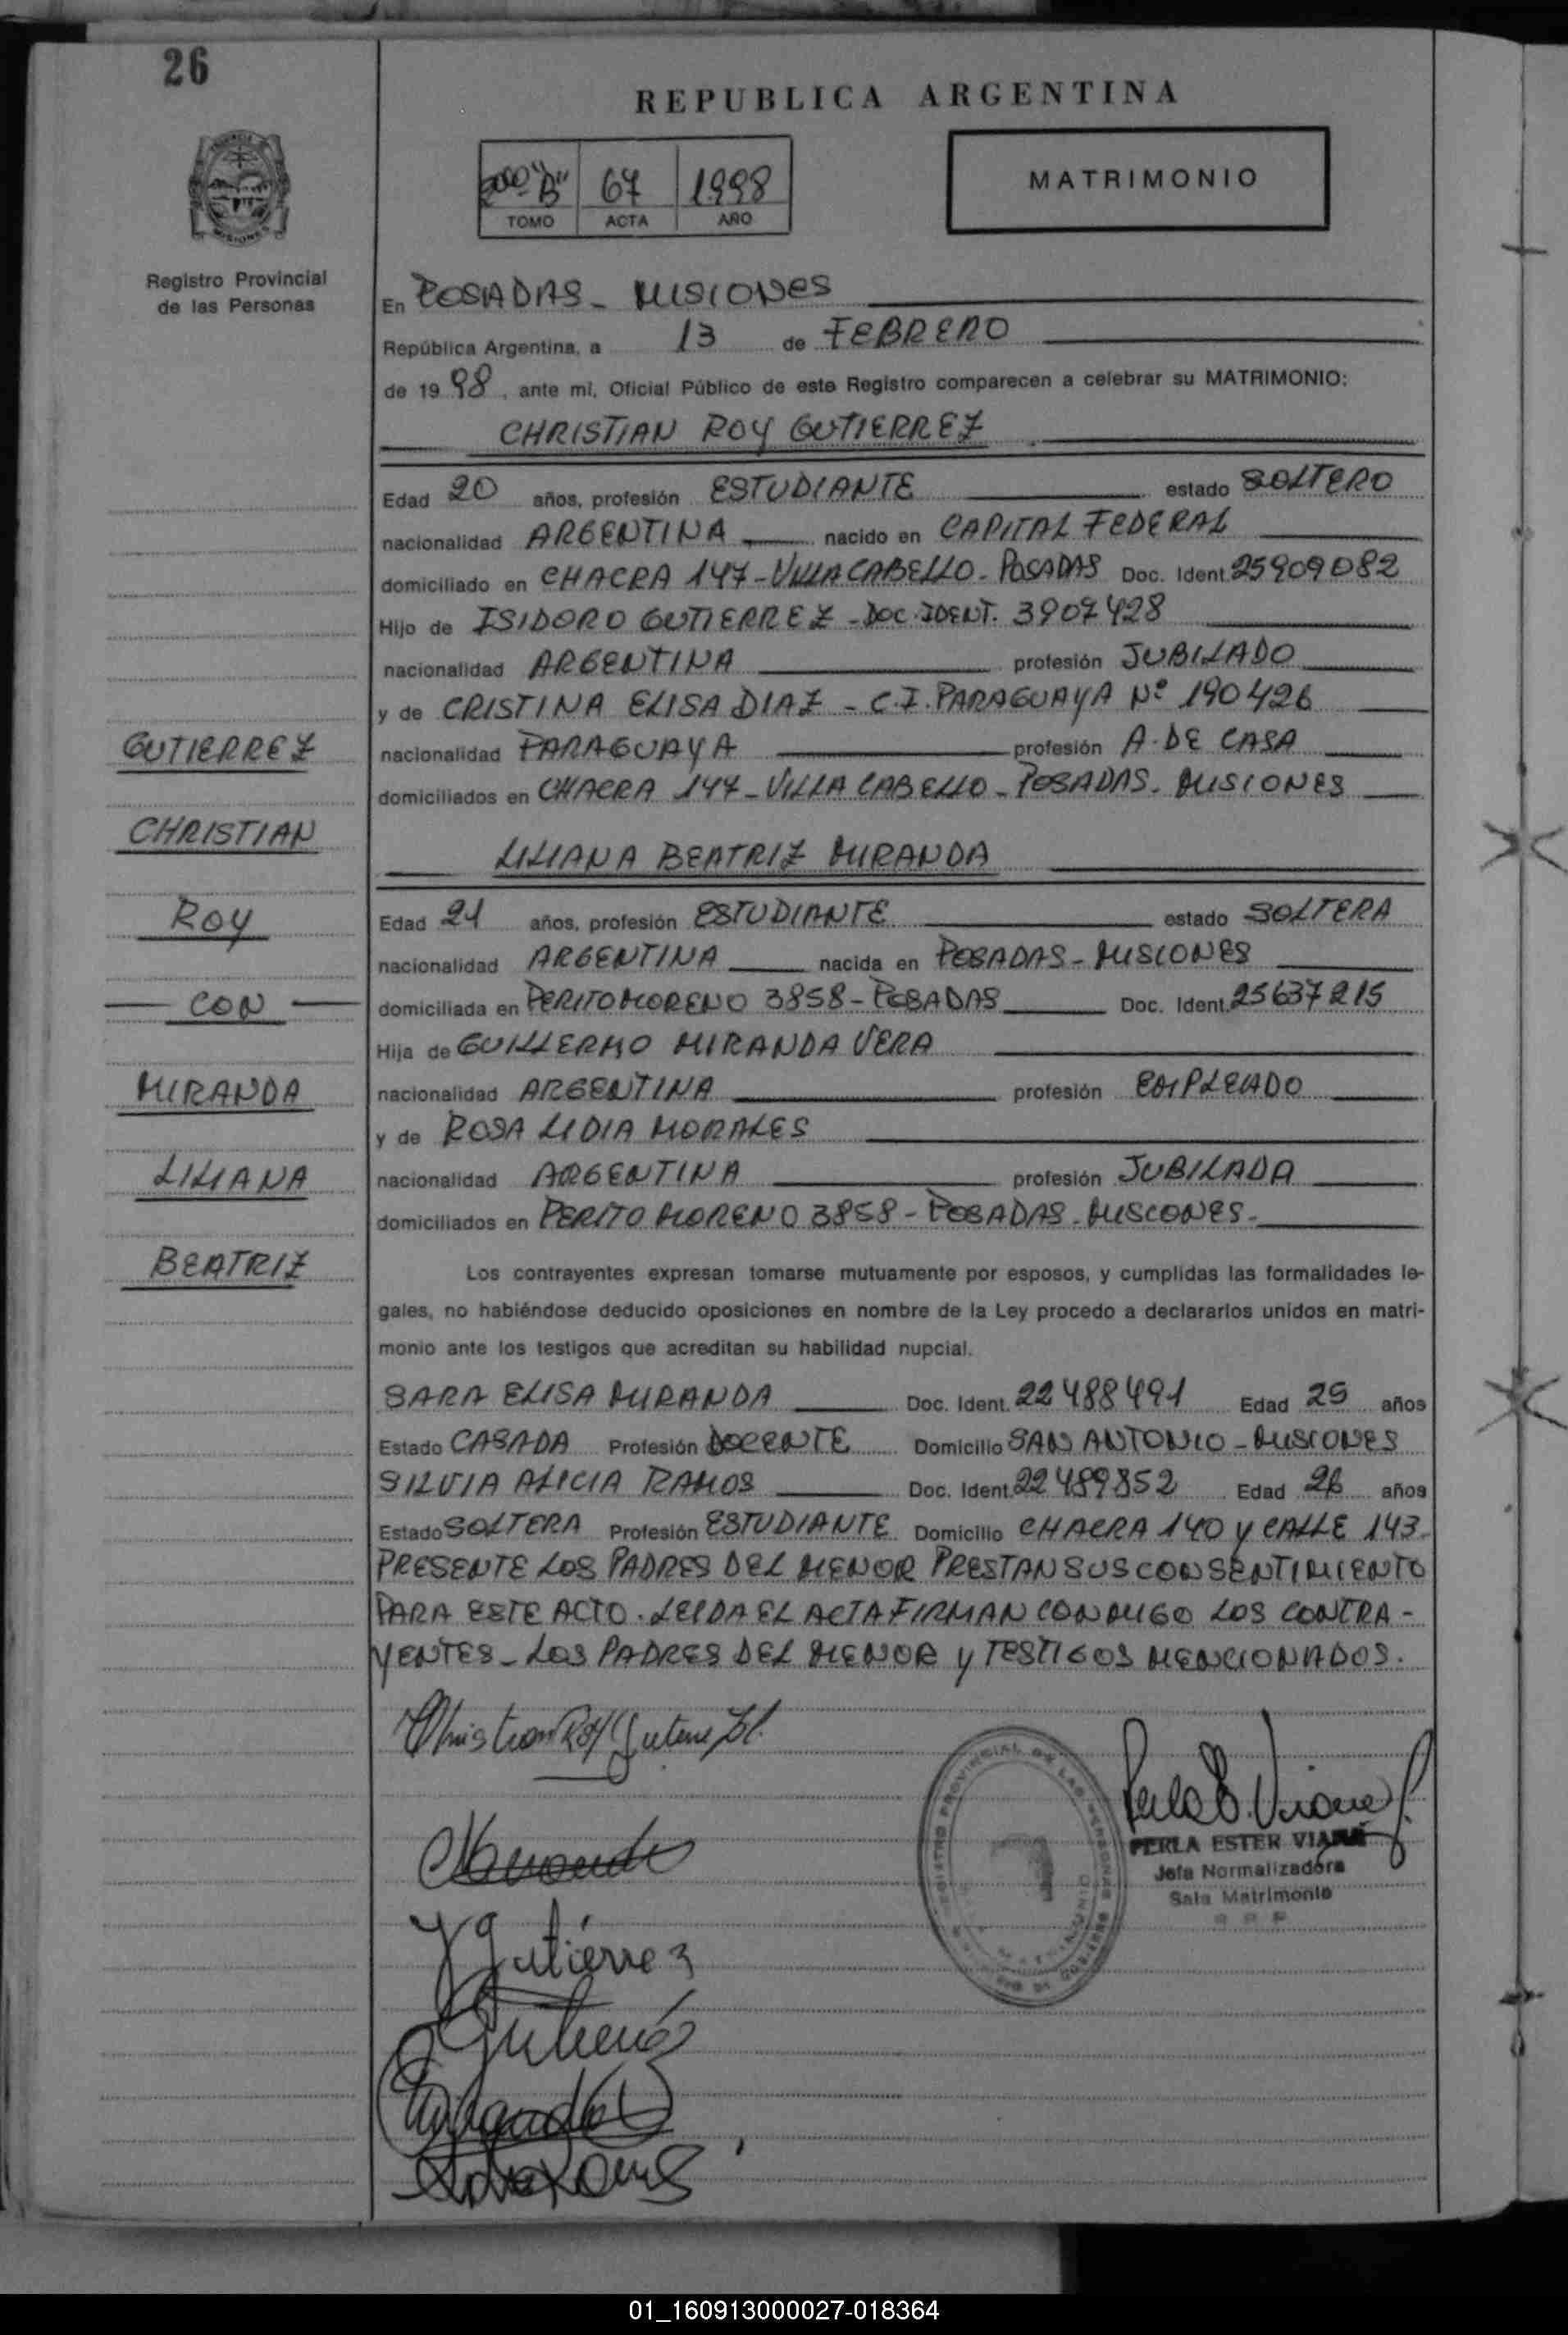 26
REPUBLICA ARGENTINA
"B" 67 1998
TOMO ACTA AÑO
MATRIMONIO
Registro Provincial
de las Personas
En POSADAS - MISIONES
República Argentina, a 13 de FEBRERO
de 1998, ante mi, Oficial Público de este Registro comparecen a celebrar su MATRIMONIO:
CHRISTIAN ROY GUTIERREZ
Edad 20 años, profesión ESTUDIANTE estado SOLTERO
nacionalidad ARGENTINA nacido en CAPITAL FEDERAL
domiciliado en CHACRA 147 - VILLA CABELLO - POSADAS Doc. Ident. 25909082
Hijo de ISIDORO GUTIERREZ - DOC. IDENT. 3907428
nacionalidad ARGENTINA profesión JUBILADO
y de CRISTINA ELISA DIAZ - C.I. PARAGUAYA Nº 190426
nacionalidad PARAGUAYA profesión A. DE CASA
domiciliados en CHACRA 147 - VILLA CABELLO - POSADAS - MISIONES
LILIANA BEATRIZ MIRANDA
Edad 21 años, profesión ESTUDIANTE estado SOLTERA
nacionalidad ARGENTINA nacida en POSADAS - MISIONES
domiciliada en PERITO MORENO 3858 - POSADAS Doc. Ident. 25637215
Hija de GUILLERMO MIRANDA VERA
nacionalidad ARGENTINA profesión EMPLEADO
y de ROSA LIDIA MORALES
nacionalidad ARGENTINA profesión JUBILADA
domiciliados en PERITO MORENO 3858 - POSADAS - MISIONES -
GUTIERREZ
CHRISTIAN
ROY
CON
MIRANDA
LILIANA
BEATRIZ
Los contrayentes expresan tomarse mutuamente por esposos, y cumplidas las formalidades le-
gales, no habiéndose deducido oposiciones en nombre de la Ley procedo a declararlos unidos en matri-
monio ante los testigos que acreditan su habilidad nupcial.
SARA ELISA MIRANDA Doc. Ident. 22488491 Edad 25 años
Estado CASADA Profesión DOCENTE Domicilio SAN ANTONIO - MISIONES
SILVIA ALICIA RAMOS Doc. Ident. 22489852 Edad 26 años
Estado SOLTERA Profesión ESTUDIANTE Domicilio CHACRA 140 y CALLE 143.
PRESENTE LOS PADRES DEL MENOR PRESTAN SUS CONSENTIMIENTO
PARA ESTE ACTO. LEIDA EL ACTA FIRMAN CONMIGO LOS CONTRA-
YENTES - LOS PADRES DEL MENOR y TESTIGOS MENCIONADOS.
Christian Roy
Gutiérrez
PERLA ESTER VIANA
Jefa Normalizadora
Sala Matrimonio
01_160913000027-018364